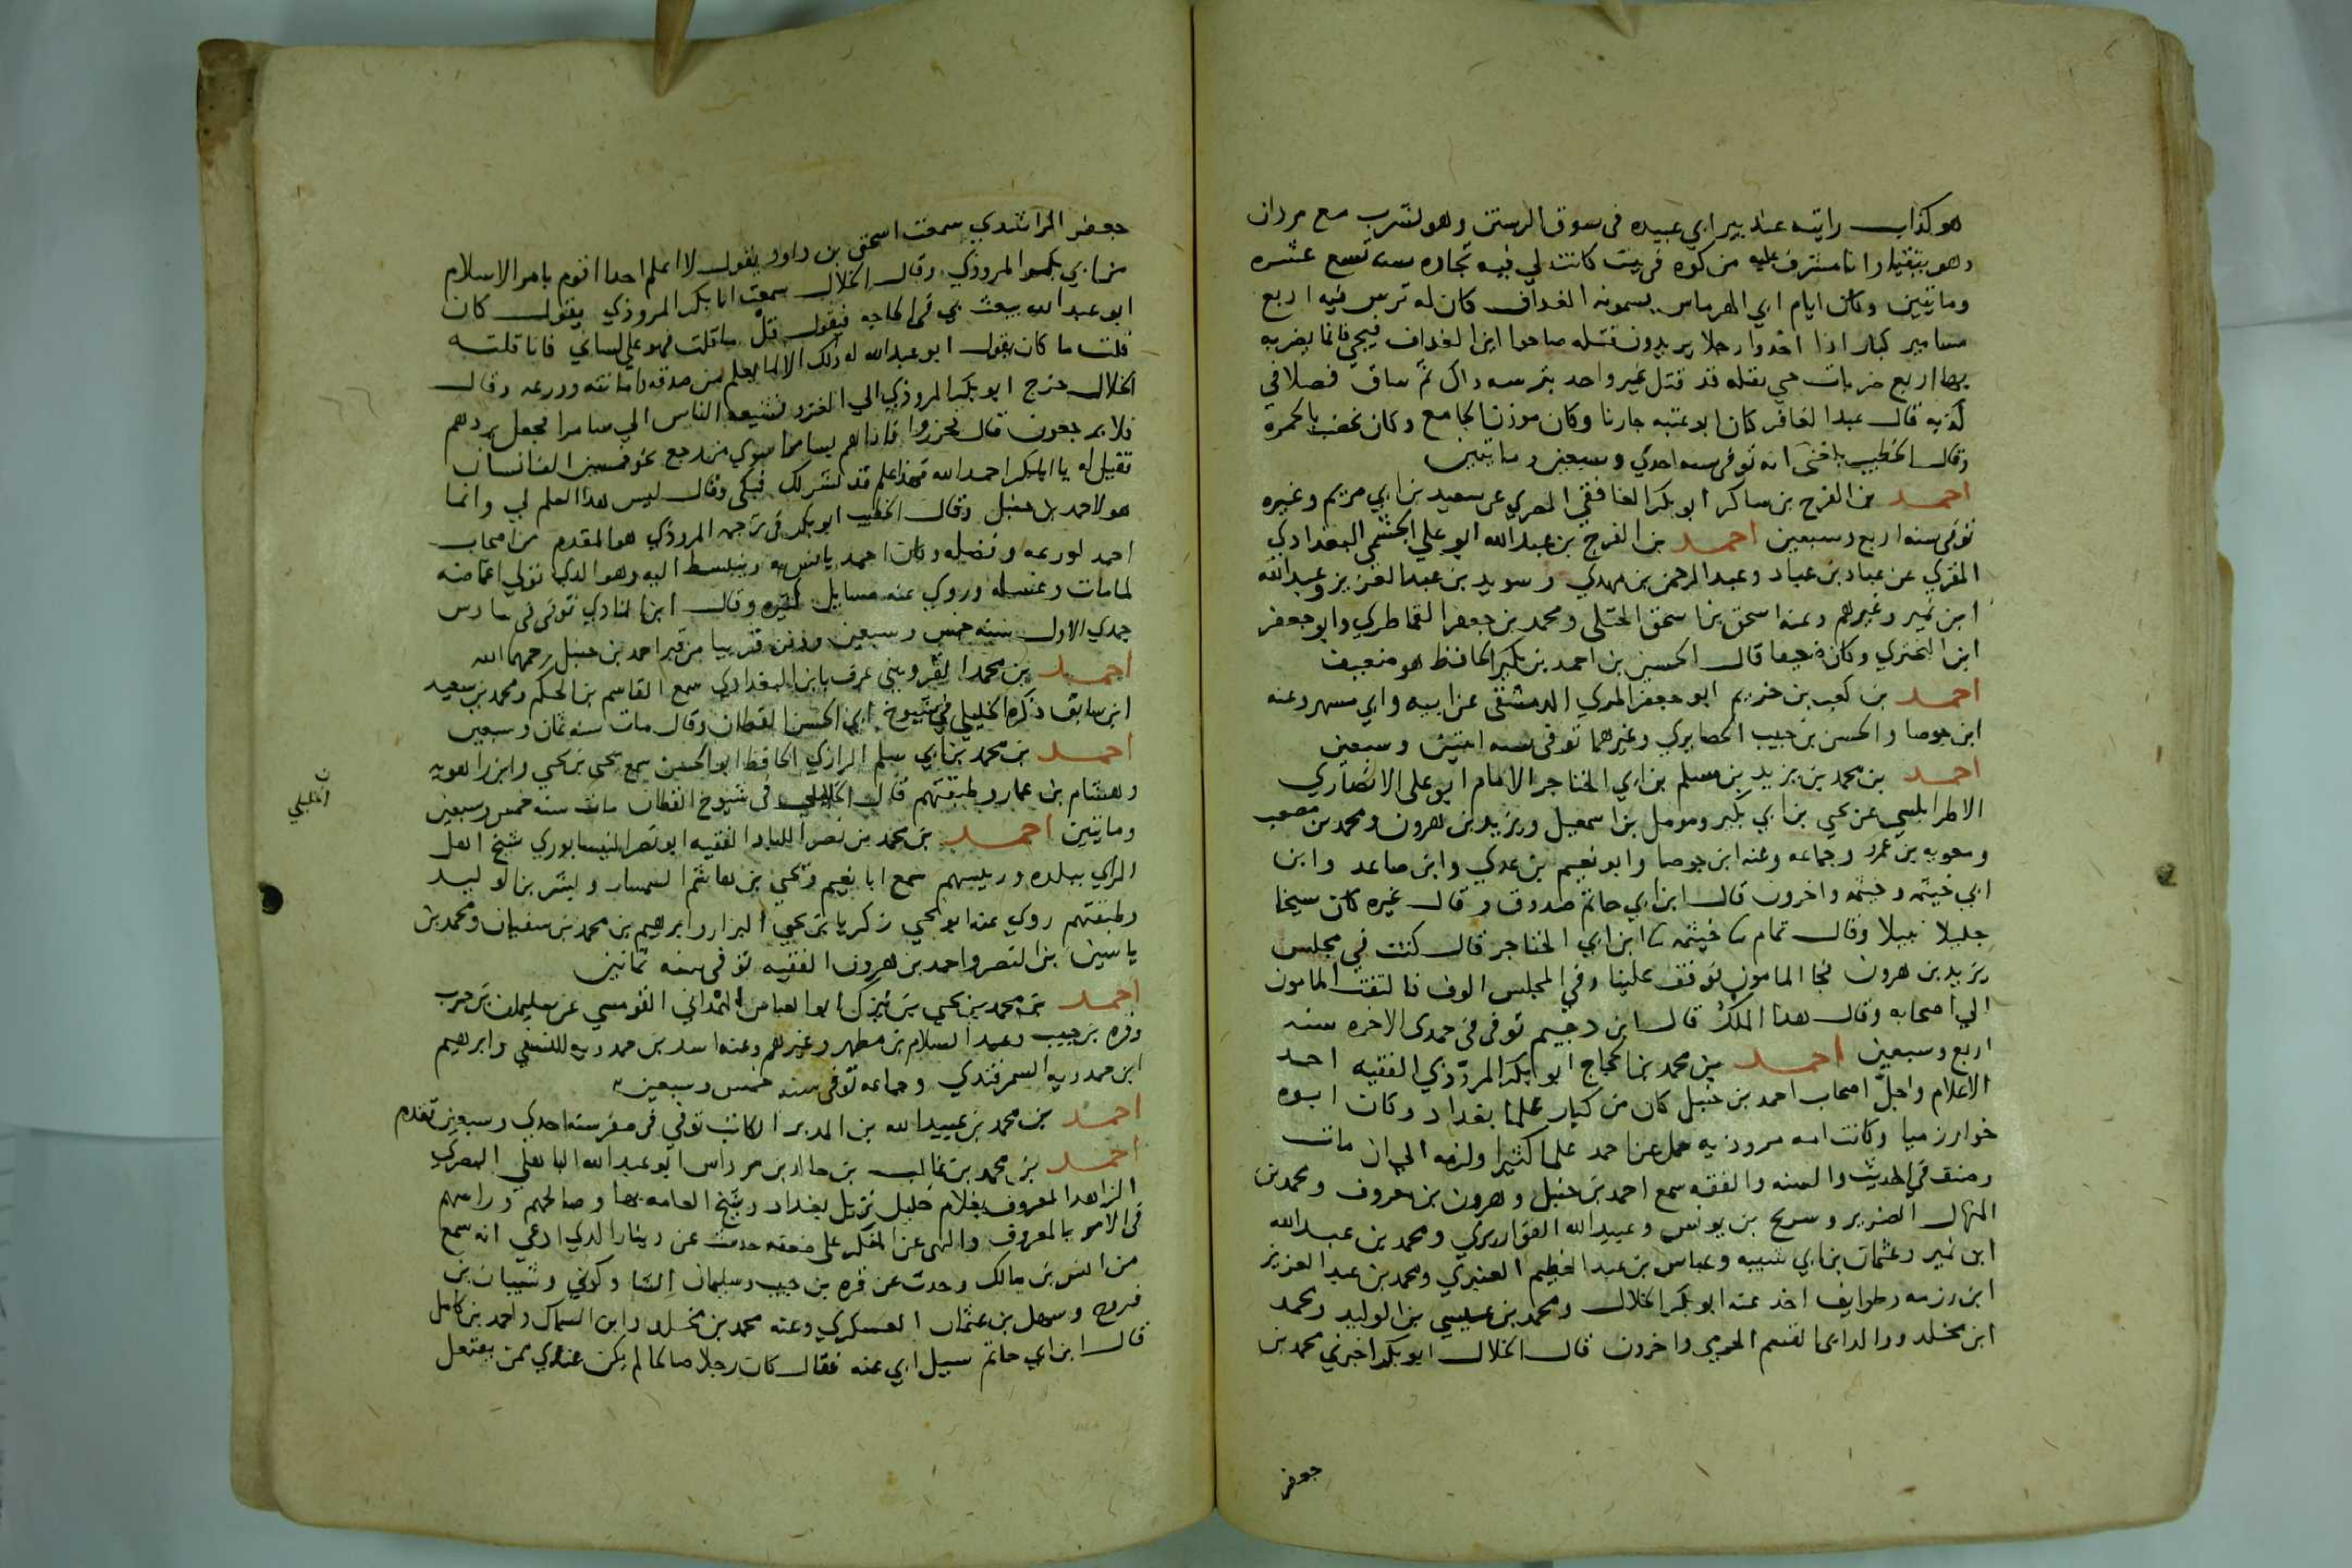 هو كذاب رايته عند بير ابي عبيده فى سوق الرستن وهو يشرب مع مردان
وهو يتقيا وانا مشرف عليه من كوه فى بيت كانت لي فيه تجاره سنه تسع عشره
وماتيين وكان ايام ابي الهرماس يسمونه الغداف كان له ترس فيه اربع
مسامير كبار اذا اخذوا رجلا يريدون قتله صاحوا اين الغداف فيجي فانما يضربه
بها اربع ضربات حتي يقتله قد قتل غير واحد بترسه ذاك ثم ساق فصلا في
كذبه قال عبد الغافر كان ابو عتبه جارنا وكان موذن الجامع وكان يخضب بالحمره
وقال الخطيب بلغنى انه توفى سنه احدي وسبعين وماتيين
احمد بن الفرج بن شاكر ابو بكر الغافقي المصري عن سعيد بن ابي مريم وغيره
توفى سنه اربع وسبعين احمد بن الفرج بن عبد الله ابو علي الجشمي البغدادي
المقري عن عباد بن عباد وعبد الرحمن بن مهدي وسويد بن عبد العزيز وعبد الله
ابن نمير وغيرهم وعنه اسحق بن اسحق الختلى ومحمد بن جعفر القماطري وابو جعفر
ابن البختري وكان ضعيفا قال الحسين بن احمد بن بكير الحافظ هو ضعيف
احمد بن كعب بن خريم ابو جعفر المري الدمشقى عن ابيه وابي مسهر وعنه
ابن جوصا والحسن بن حبيب الحصايري وغيرهما توفى سنه اثنتين وسبعين
احمد بن محمد بن يزيد بن مسلم بن ابي الخناجر الامام ابو على الانصاري
الاطرابلسي عن يحي بن ابي بكير ومومل بن اسمعيل ويزيد بن هرون ومحمد بن مصعب
ومعويه بن عمرو وجماعه وعنه ابن جوصا وابو نعيم بن عدي وابن صاعد وابن
ابي خيثمه وخيثمه واخرون قال ابن ابي حاتم صدوق وقال غيره كان شيخا
جليلا نبيلا وقال تمام ثنا خيثمه ثنا ابن ابي الخناجر قال كنت في مجلس
يزيد بن هرون فجا المامون فوقف علينا وفي المجلس الوف فالتفت المامون
الي اصحابه وقال هذا الملك قال ابن دحيم توفى فى جمدى الاخره سنه
اربع وسبعين احمد بن محمد بن الحجاج ابو بكر المروذي الفقيه احد
الاعلام واجل اصحاب احمد بن حنبل كان من كبار علما بغداد وكان ابوه
خوارزميا وكانت امه مروذيه حمل عن احمد علما كثيرا ولزمه الي ان مات
وصنف فى الحديث والسنه والفقه سمع احمد بن حنبل وهرون بن معروف ومحمد بن
المنهال الضرير وسريج بن يونس وعبيد الله القواريري ومحمد بن عبد الله
ابن نمير وعثمان بن ابي شيبه وعباس بن عبد العظيم العنبري ومحمد بن عبد العزيز
ابن رزمه وطوايف اخذ عنه ابو بكر الخلال ومحمد بن عيسي بن الوليد ومحمد
ابن مخلد ووالد ابى القسم الخرقي واخرون قال الخلال ابو بكر اخبرني محمد بن
جعفر
جعفر الراشدي سمعت اسحق بن داود يقول لا اعلم احدا اقوم بامر الاسلام
من ابي بكر المروذي وقال الخلال سمعت ابا بكر المروذي يقول كان
ابو عبد الله يبعث بي فى الحاجه فيقول قل ما قلت فهو علي لساني فانا قلته
قلت ما كان يقول ابو عبد الله له ذلك الا لما يعلم من صدقه وامانته وورعه وقال
الخلال خرج ابو بكر المروذي الي الغزو فشيعه الناس الي سامرا فجعل يردهم
فلا يرجعون قال فحزروا فاذا هم بسامرا سوي من رجع نحو خمسين الف انسان
فقيل له يا ابا بكر احمد الله فهذا علم قد نشر لك فبكى وقال ليس هذا العلم لي وانما
هو لاحمد بن حنبل وقال الخطيب ابو بكر فى ترجمه المروذي هو المقدم من اصحاب
احمد لورعه وفضله وكان احمد يانس به وينبسط اليه وهو الذي تولي اغماضه
لما مات وغسله وروي عنه مسايل كثيره وقال ابن المنادي توفى فى سادس
جمدي الاول سنه خمس وسبعين ودفن قريبا من قبر احمد بن حنبل رحمهما الله
احمد بن محمد القزويني عرف بابن البغدادي سمع القاسم بن الحكم ومحمد بن سعيد
ابن سابق ذكره الخليلي في شيوخ ابي الحسن القطان وقال مات سنه ثمان وسبعين
احمد بن محمد بن ابي سلم الرازي الحافظ ابو الحسين سمع يحى بن يحي وابن راهويه
وهشام بن عمار وطبقتهم قال الخليلي فى شيوخ القطان مات سنه خمس وسبعين
ن الخليلي
وماتيين احمد بن محمد بن نصر اللباد الفقيه ابو نصر النيسابوري شيخ اهل
الراي ببلده ورييسهم سمع ابا نعيم ويحي بن هاشم السمسار وبشر بن الوليد
وطبقتهم روي عنه ابو يحي زكريا بن يحي البزار وابرهيم بن محمد بن سفيان ومحمد بن
ياسين بن النضر واحمد بن هرون الفقيه توفى سنه ثمانين
احمد بن محمد بن يحي بن نيزك ابو العباس الهمداني القومسي عن سليمان بن حرب
وقره بن حبيب وعبد السلام بن مطهر وغيرهم وعنه اسد بن حمدويه النسفي وابرهيم
ابن حمدويه السمرقندي وجماعه توفى سنه خمس وسبعين
احمد بن محمد بن عبيد الله بن المدبر الكاتب توفي فى صفر سنه احدي وسبعين تقدم
احمد بن محمد بن غالب بن خالد بن مرداس ابو عبد الله الباهلي البصري
الزاهد المعروف بغلام خليل نزيل بغداد وشيخ العامه بها وصالحهم وراسهم
فى الامر بالمعروف والنهى عن المنكر على ضعفه حدث عن دينار الذي ادعى انه سمع
من انس بن مالك وحدث عن قره بن حبيب وسليمان الشاذكوني وشيبان بن
فروخ وسهل بن عثمان العسكري وعنه محمد بن مخلد وابن السماك واحمد بن كامل
قال ابن ابي حاتم سيل ابي عنه فقال كان رجلا صالحا لم يكن عندي ممن يفتعل